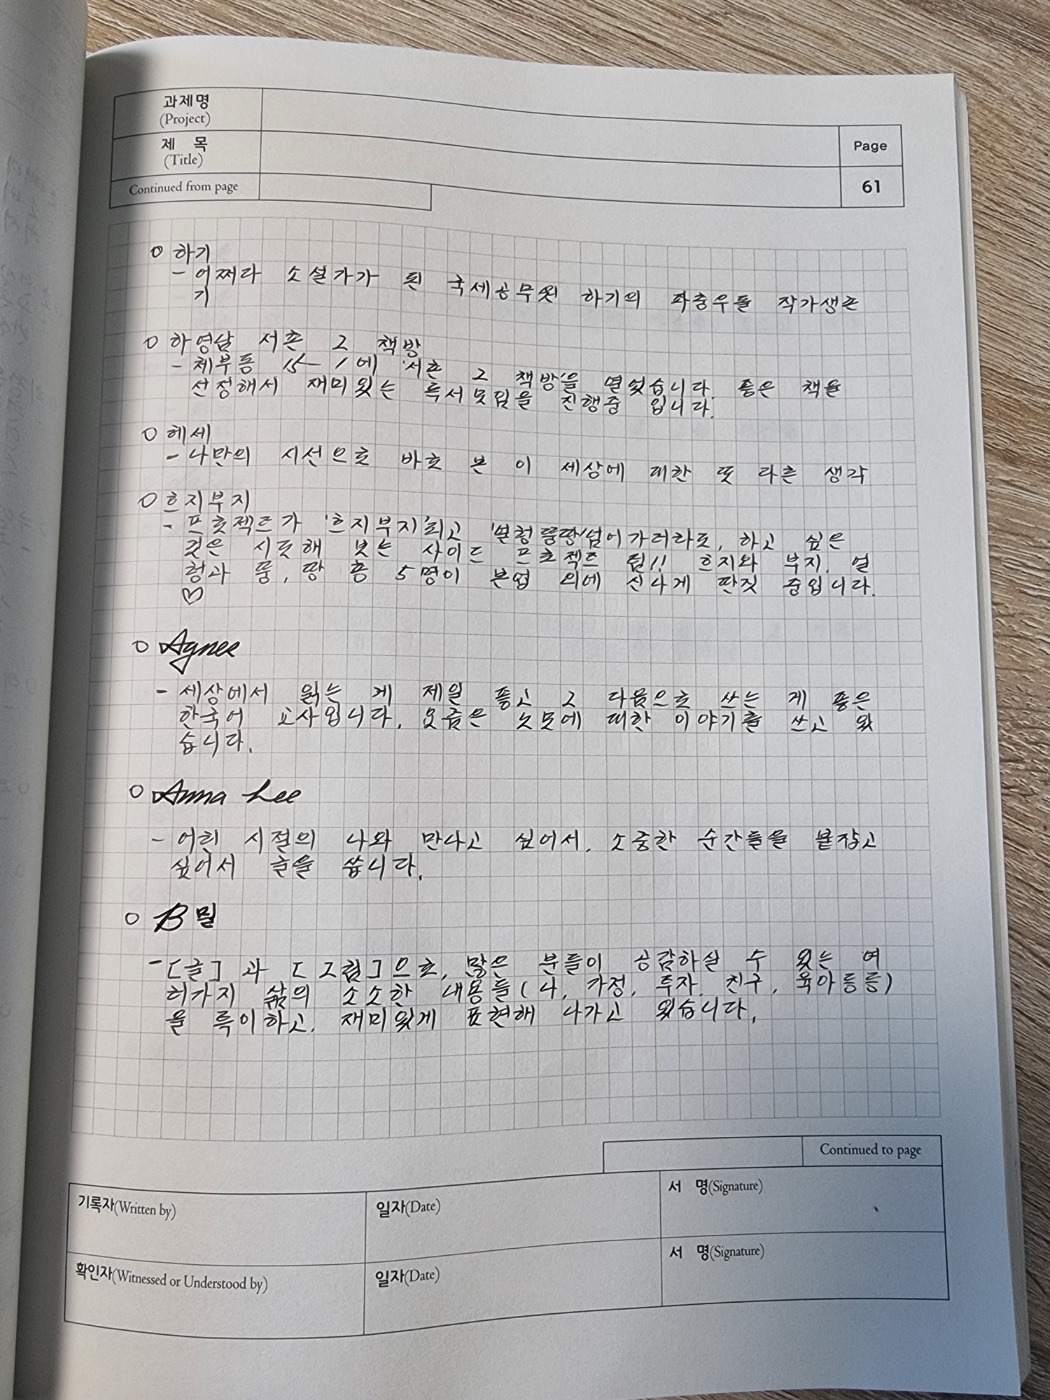 과제명
(Project)
제 목
(Title)
Page
Continued from page
61
o 하기
- 어쩌라 소설가가 된 국세공무원 하기의 좌충우돌 작가생존
기
o 하영남 서촌 그 책방
- 체부동 15-1에 '서촌 그 책방'을 열었습니다. 좋은 책을
선정해서 재미있는 독서모임을 진행중 입니다.
o 헤세
- 나만의 시선으로 바로 본 이 세상에 대한 또 다른 생각
o 흐지부지
- 프로젝트가 '흐지부지'되고 넘어가더라도, 하고 싶은
것은 시도해 보는 사이드 프로젝트 팀!! 흐지와 부지, 얼
렁과 뚱, 땅 총 5명이 본업 외에 신나게 딴짓 중입니다.
♡
o Agnes
- 세상에서 읽는 게 제일 좋고 그 다음으로 쓰는 게 좋은
한국어 교사입니다. 요즘은 노모에 대한 이야기를 쓰고 있
습니다.
o Anna Lee
- 어린 시절의 나와 만나고 싶어서, 소중한 순간들을 붙잡고
싶어서 글을 씁니다.
o B밀
- [글]과 [그림]으로, 많은 분들이 공감하실 수 있는 여
러가지 삶의 소소한 내용들(나, 가정, 투자, 친구, 육아등등)
을 특이하고, 재미있게 표현해 나가고 있습니다.
Continued to page
기록자(Written by)
일자(Date)
서 명(Signature)
확인자(Witnessed or Understood by)
일자(Date)
서 명(Signature)